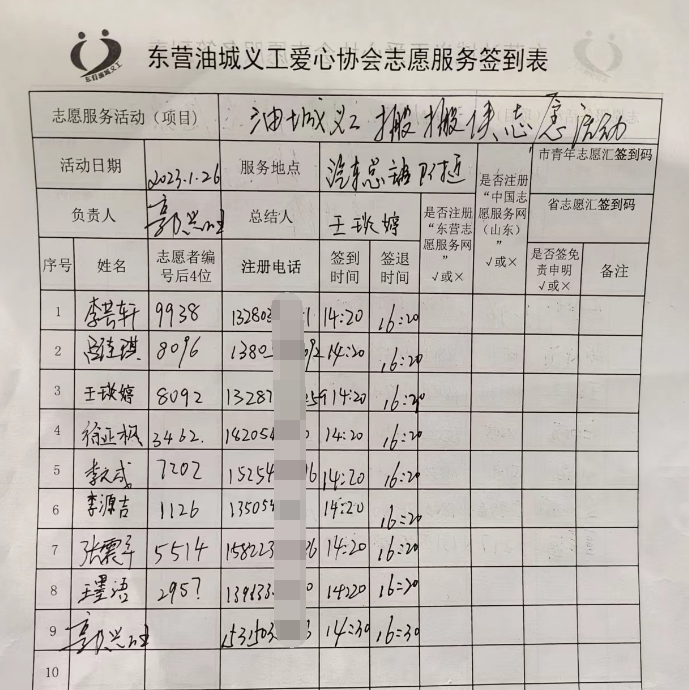 东营油城义工
东营油城义工爱心协会志愿服务签到表
志愿服务活动（项目） 油城义工搬搬侠志愿活动
活动日期 2023.1.26 服务地点 汽车总站附近 是否注册“东营志愿服务网” √或× 是否注册“中国志愿服务网（山东）” √或× 市青年志愿汇签到码
负责人 总结人 王琰婷 省志愿汇签到码
序号 姓名 志愿者编号后4位 注册电话 签到时间 签退时间 是否签免责申明 √或× 备注
1 9938 132803 1 14:20 16:20
2 8096 1380 92 14:20 16:20
3 王琰婷 8092 13287 59 14:20 16:20
4 徐正枫 3462. 182054 14:20 16:20
5 7202 15254 6 14:20 16:20
6 李源吉 1126 135054 14:20 16:20
7 张震宇 5514 158223 6 14:20 16:20
8 2957 0 14:20 16:20
9 1531503 3 14:30 16:30
10